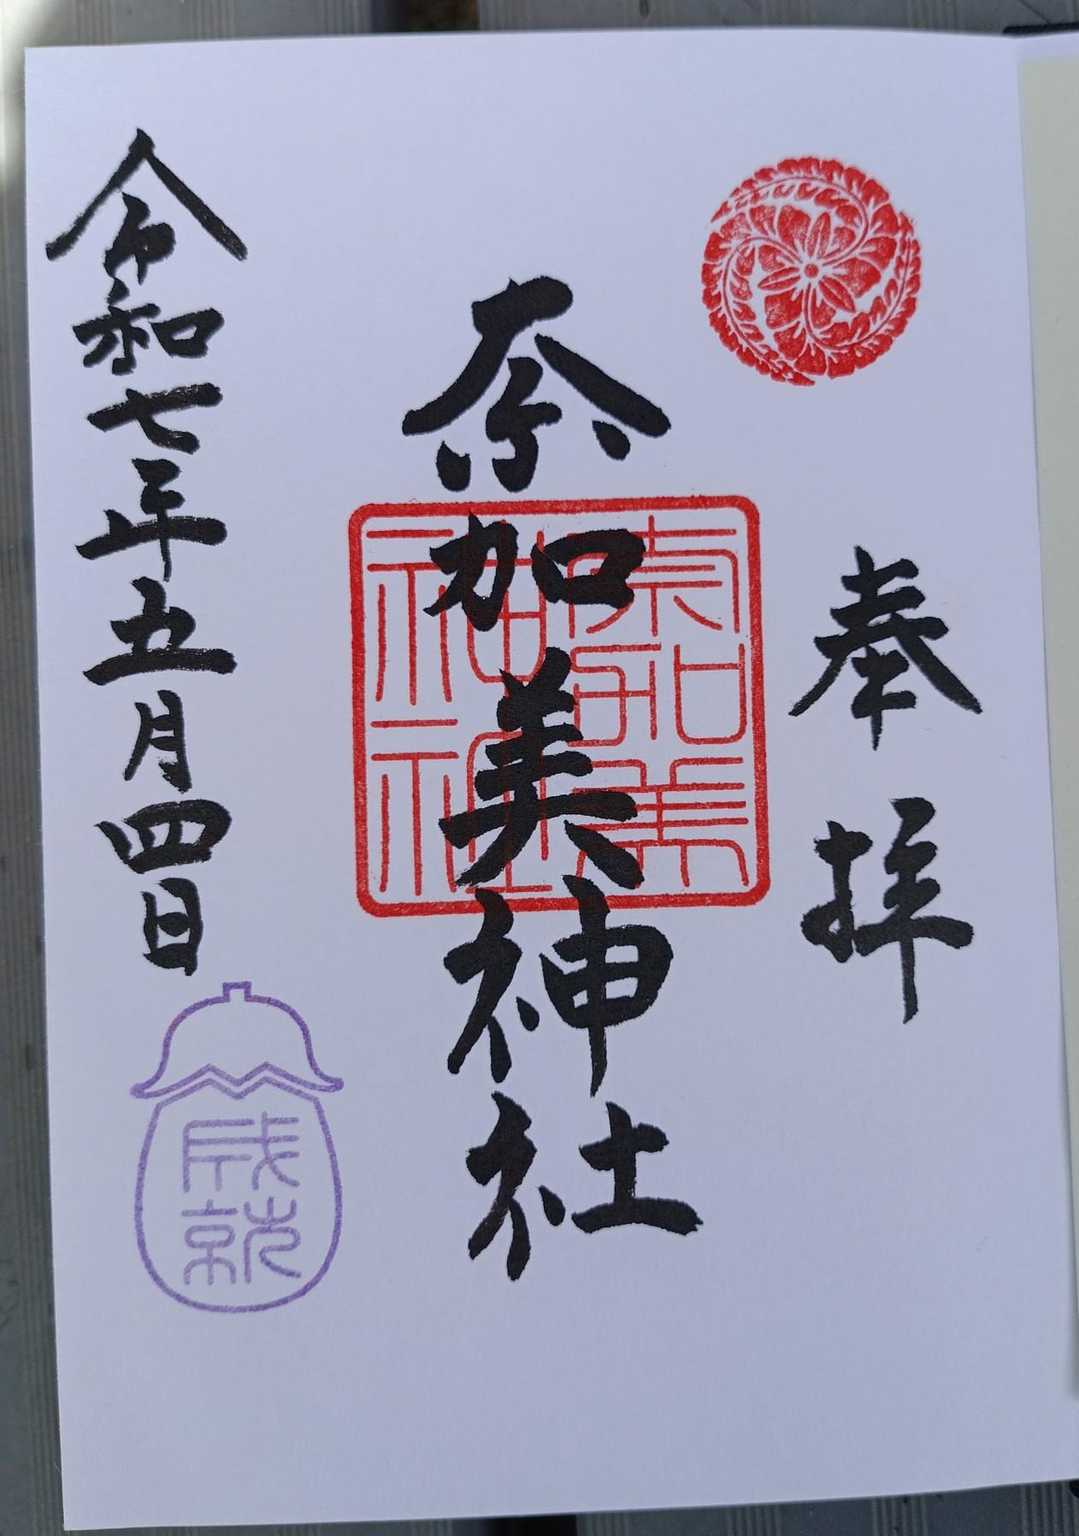 奉拝
奈加美神社
奈加美
神社
令和七年五月四日
成就